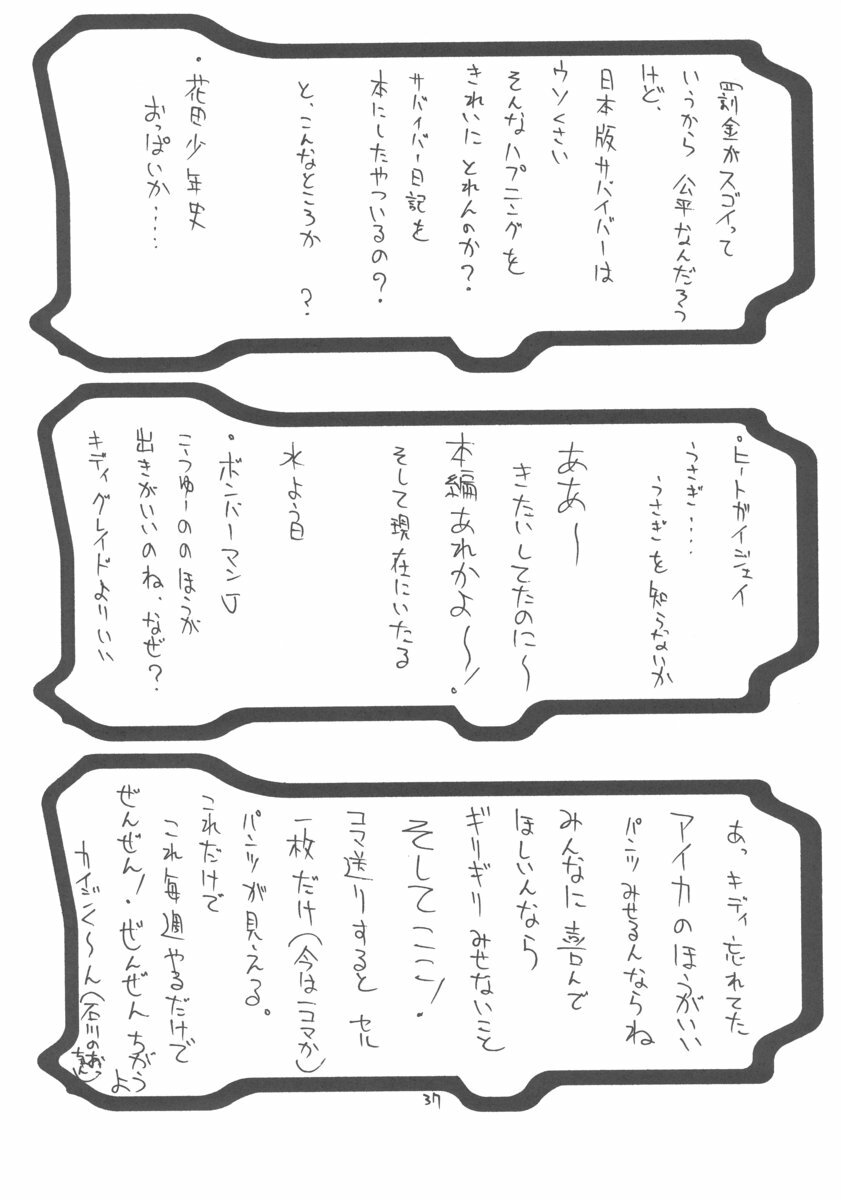 罰金がスゴイって
いうから 公平なんだろう
けど、
日本版サバイバーは
ウソくさい
そんなハプニングを
きれいに とれんのか？
サバイバー日記を
本にしたやついるの？
と、こんなところか ？
・花田少年史
おっぱいか‥‥‥
・ヒートガイジェイ
うさぎ‥‥
うさぎを知らないか
ああ〜
きたいしてたのに〜
本編あれかよ〜！。
そして現在にいたる
水よう日
・ボンバーマンJ
こうゆーののほうが
出きがいいのね、なぜ？
キディグレイドよりいい
あっ キディ忘れてた
アイカのほうがいい
パンツみせるんならね
みんなに喜んで
ほしいんなら
ギリギリ みせないこと
そしてここ！
コマ送りすると セル
一枚だけ（今は一コマか）
パンツが見える。
これだけで
これ毎週やるだけで
ぜんぜん！ぜんぜんちがうよ
カイジンく〜ん（石川のおっちゃん）
37